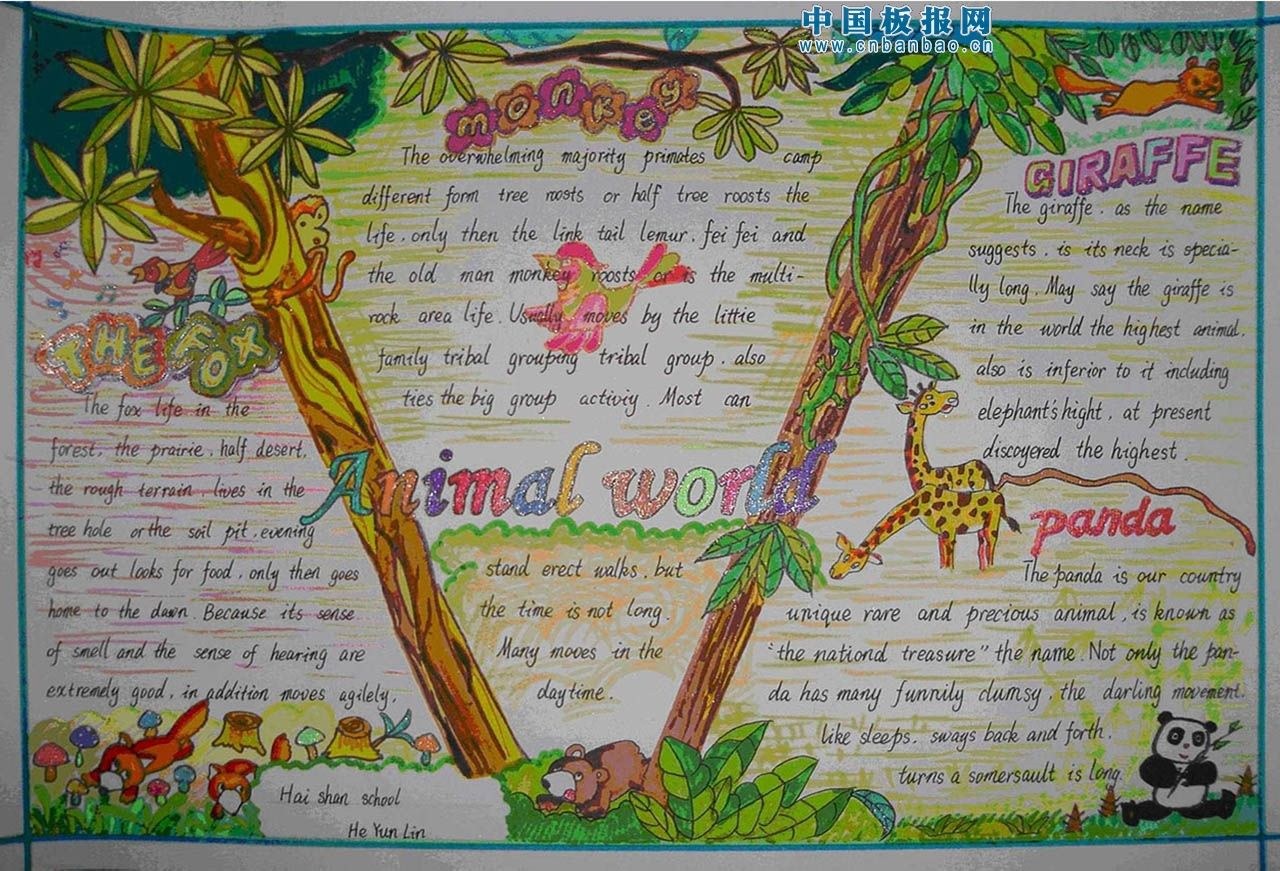 中国板报网
www.cnbanbao.cn
monkey
The overwhelming majority primates camp
different form tree roosts or half tree roosts the
life, only then the link tail lemur, fei fei and
the old man monkey roosts or is the multi-
rock area life. Usually moves by the little
family tribal grouping tribal group, also
ties the big group activiy. Most can
Animal world
stand erect walks, but
the time is not long.
Many moves in the
daytime.
THE FOX
The fox life in the
forest, the prairie, half desert,
the rough terrain, lives in the
tree hole orthe soil pit, evening
goes out looks for food, only then goes
home to the dawn. Because its sense
of smell and the sense of hearing are
extremely good, in addition moves agilely,
Hai shan school
He Yun Lin
GIRAFFE
The giraffe, as the name
suggests, is its neck is specia-
lly long, May say the giraffe is
in the world the highest animal,
also is inferior to it including
elephant's hight, at present
discoyered the highest.
panda
The panda is our country
unique rare and precious animal, is known as
"the nationd treasure" the name. Not only the pan-
da has many funnily clumsy, the darling movement,
like sleeps, sways back and forth,
turns a somersault is long.